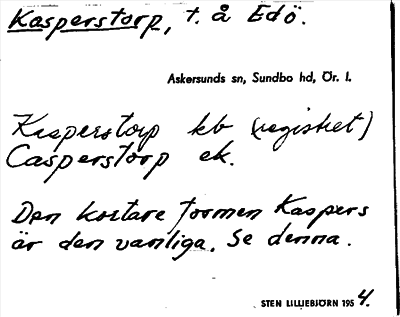 Kasperstorp, t. å Edö.
Askersunds sn, Sundbo hd, Ör. l.
Kasperstorp kb (registret)
Casperstorp ek.
Den kortare formen Kaspers
är den vanliga. Se denna.
STEN LILLIEBJÖRN 1954.